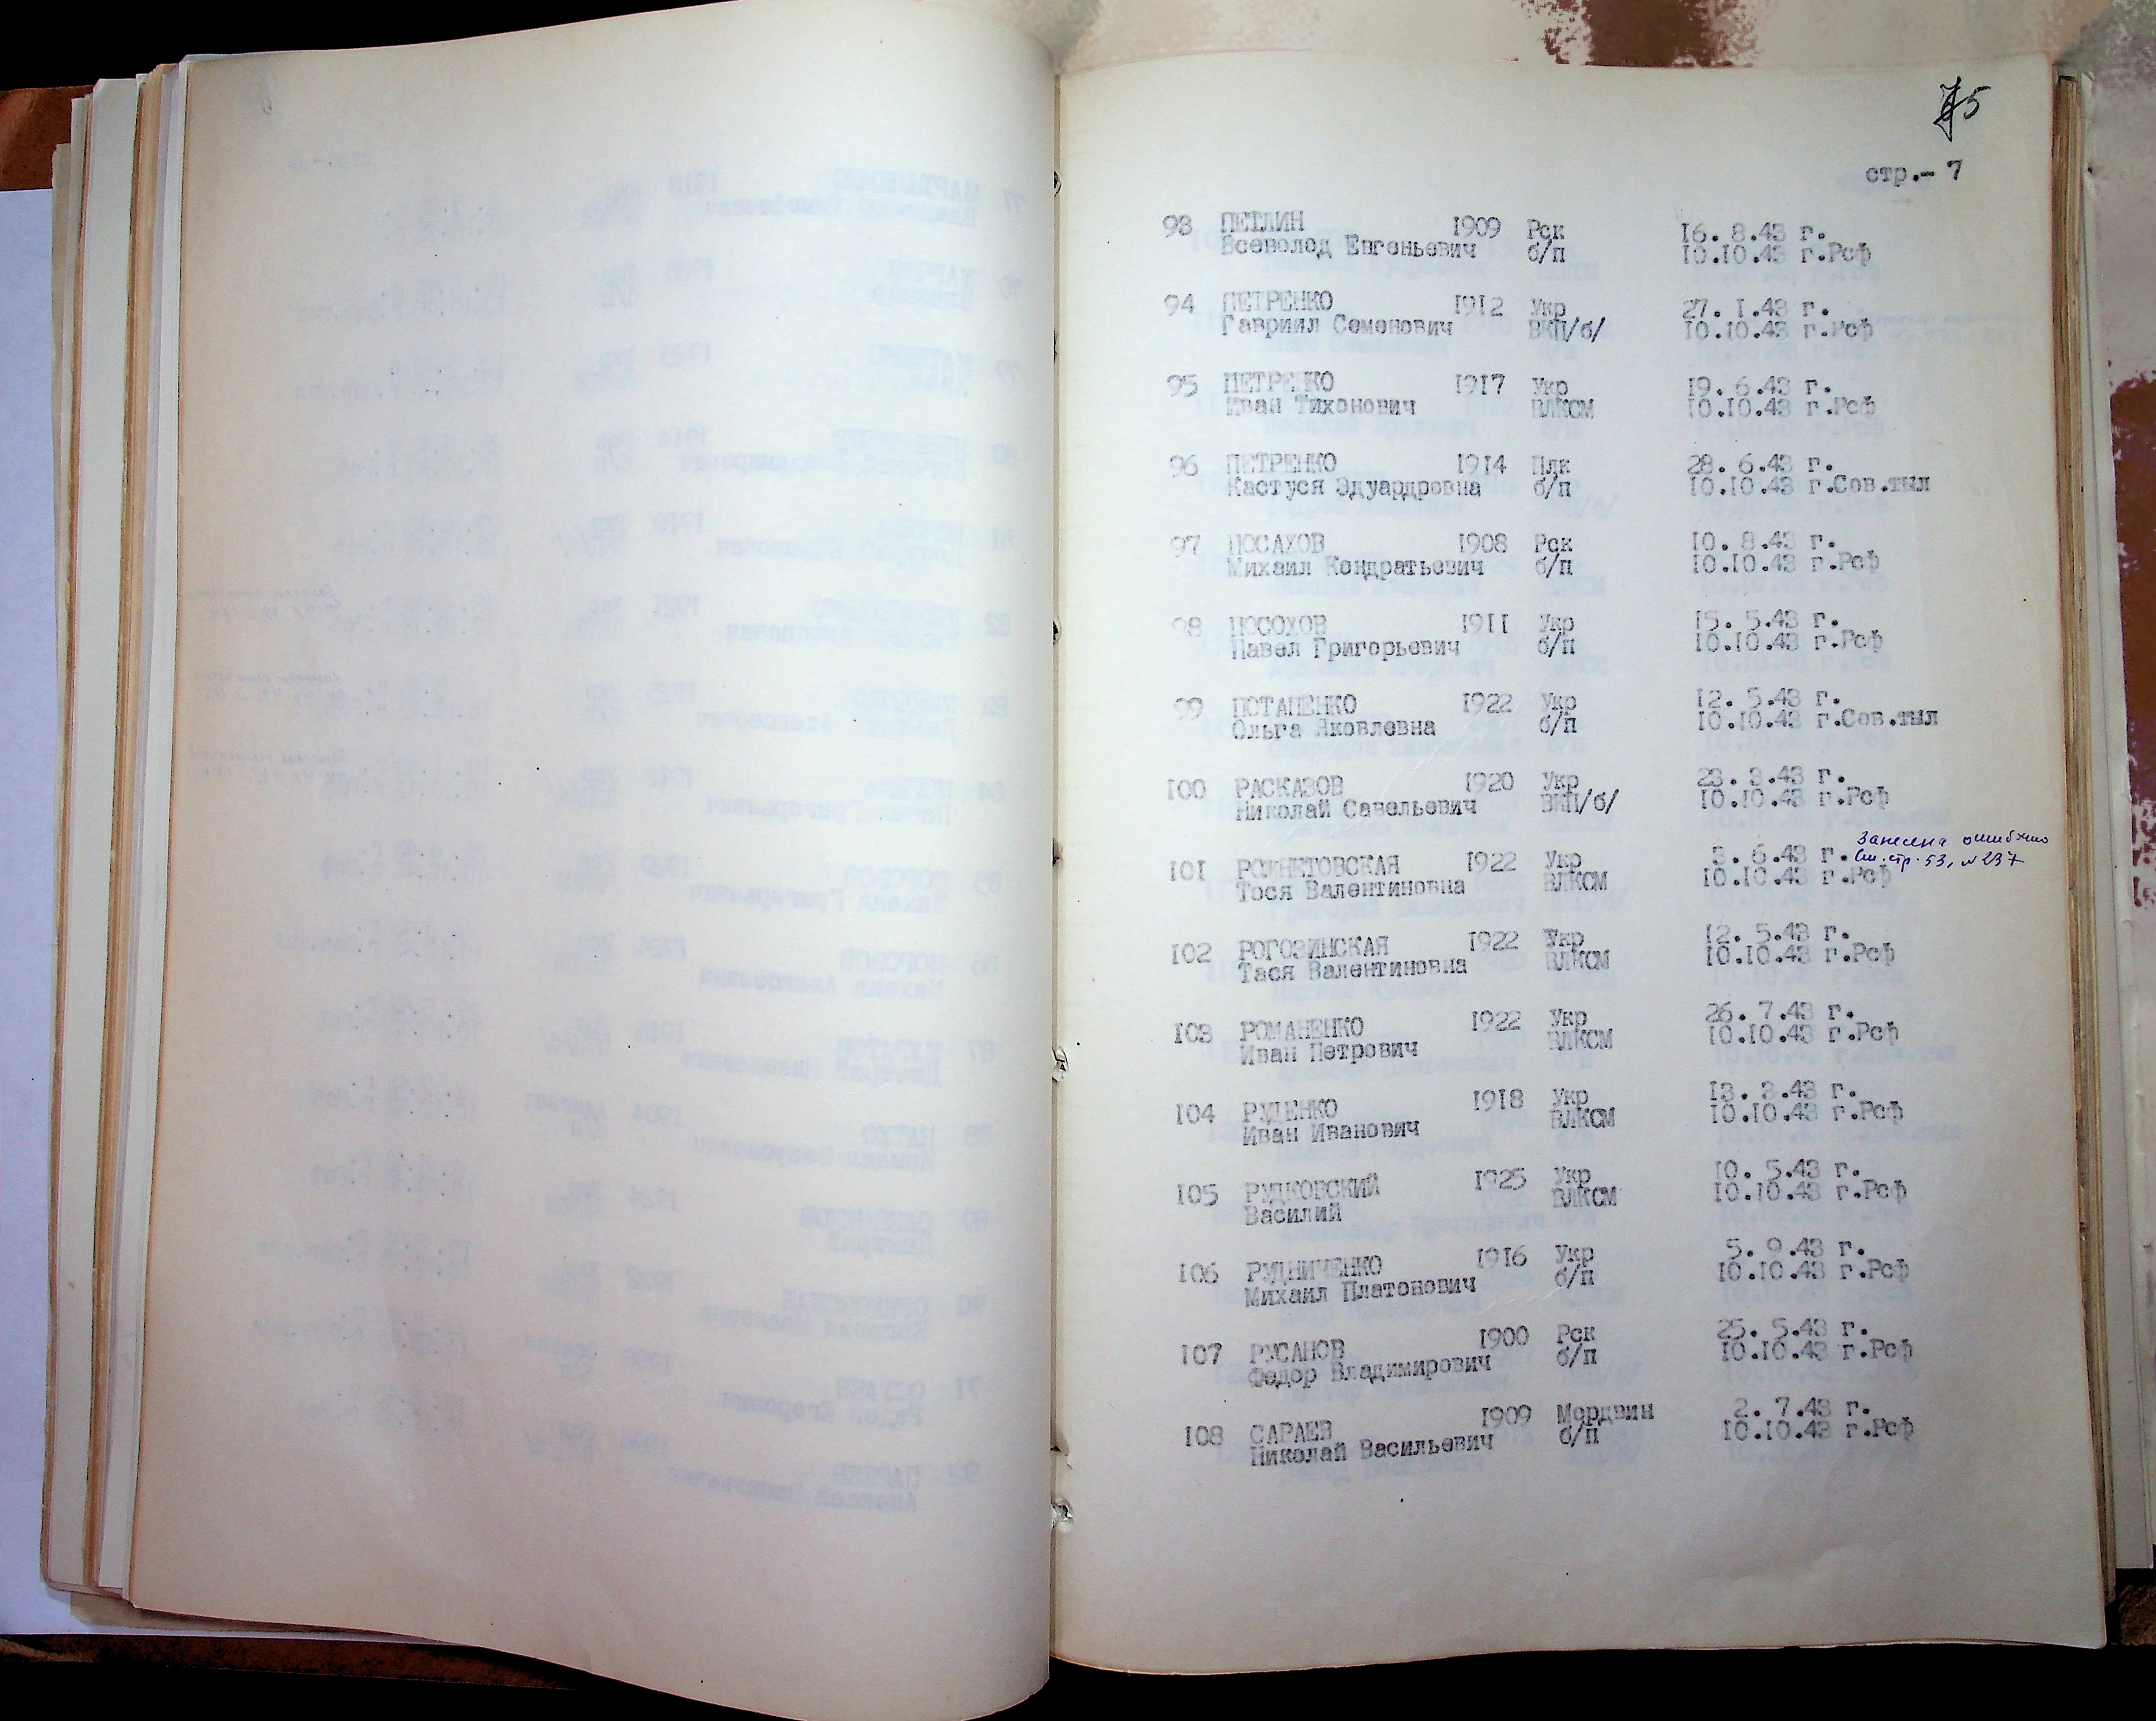 5
стр.- 7
93 ПЕТЛИН 1909 Рск 16. 8.43 г.
Всеволод Евгеньевич б/п 10.10.43 г.Рсф
94 ПЕТРЕНКО 1912 Укр 27. 1.43 г.
Гавриил Семенович ВКП/б/ 10.10.43 г.Рсф
95 ПЕТРЕНКО 1917 Укр 19. 6.43 г.
Иван Тихонович ВЛКСМ 10.10.43 г.Рсф
96 ПЕТРЕНКО 1914 Плк 28. 6.43 г.
Кастуся Эдуардровна б/п 10.10.43 г.Сов.тыл
97 ПОСАХОВ 1908 Рск 10. 8.43 г.
Михаил Кондратьевич б/п 10.10.43 г.Рсф
98 ПОСОХОВ 1911 Укр 15. 5.43 г.
Павел Григорьевич б/п 10.10.43 г.Рсф
99 ПОТАПЕНКО 1922 Укр 12. 5.43 г.
Ольга Яковлевна б/п 10.10.43 г.Сов.тыл
100 РАСКАЗОВ 1920 Укр 23. 3.43 г.
Николай Савельевич ВКП/б/ 10.10.43 г.Рсф
Занесена ошибочно
101 РОЖНЕТОВСКАЯ 1922 Укр 3. 6.43 г. См. стр. 53, № 237
Тося Валентиновна ВЛКСМ 10.10.43 г.Рсф
102 РОГОЗИНСКАЯ 1922 Укр 12. 5.43 г.
Тася Валентиновна ВЛКСМ 10.10.43 г.Рсф
103 РОМАНЕНКО 1922 Укр 26. 7.43 г.
Иван Петрович ВЛКСМ 10.10.43 г.Рсф
104 РУДЕНКО 1918 Укр 13. 3.43 г.
Иван Иванович ВЛКСМ 10.10.43 г.Рсф
105 РУДКОВСКИЙ 1925 Укр 10. 5.43 г.
Василий ВЛКСМ 10.10.43 г.Рсф
106 РУДНИЧЕНКО 1916 Укр 5. 9.43 г.
Михаил Платонович б/п 10.10.43 г.Рсф
107 РУСАНОВ 1900 Рск 25. 5.43 г.
Федор Владимирович б/п 10.10.43 г.Рсф
108 САРАЕВ 1909 Мордвин 2. 7.43 г.
Николай Васильевич б/п 10.10.43 г.Рсф